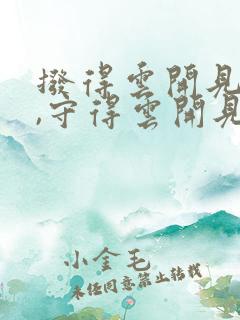 撥得雲開見
,守得雲開見
小金毛
未经同意禁止转载